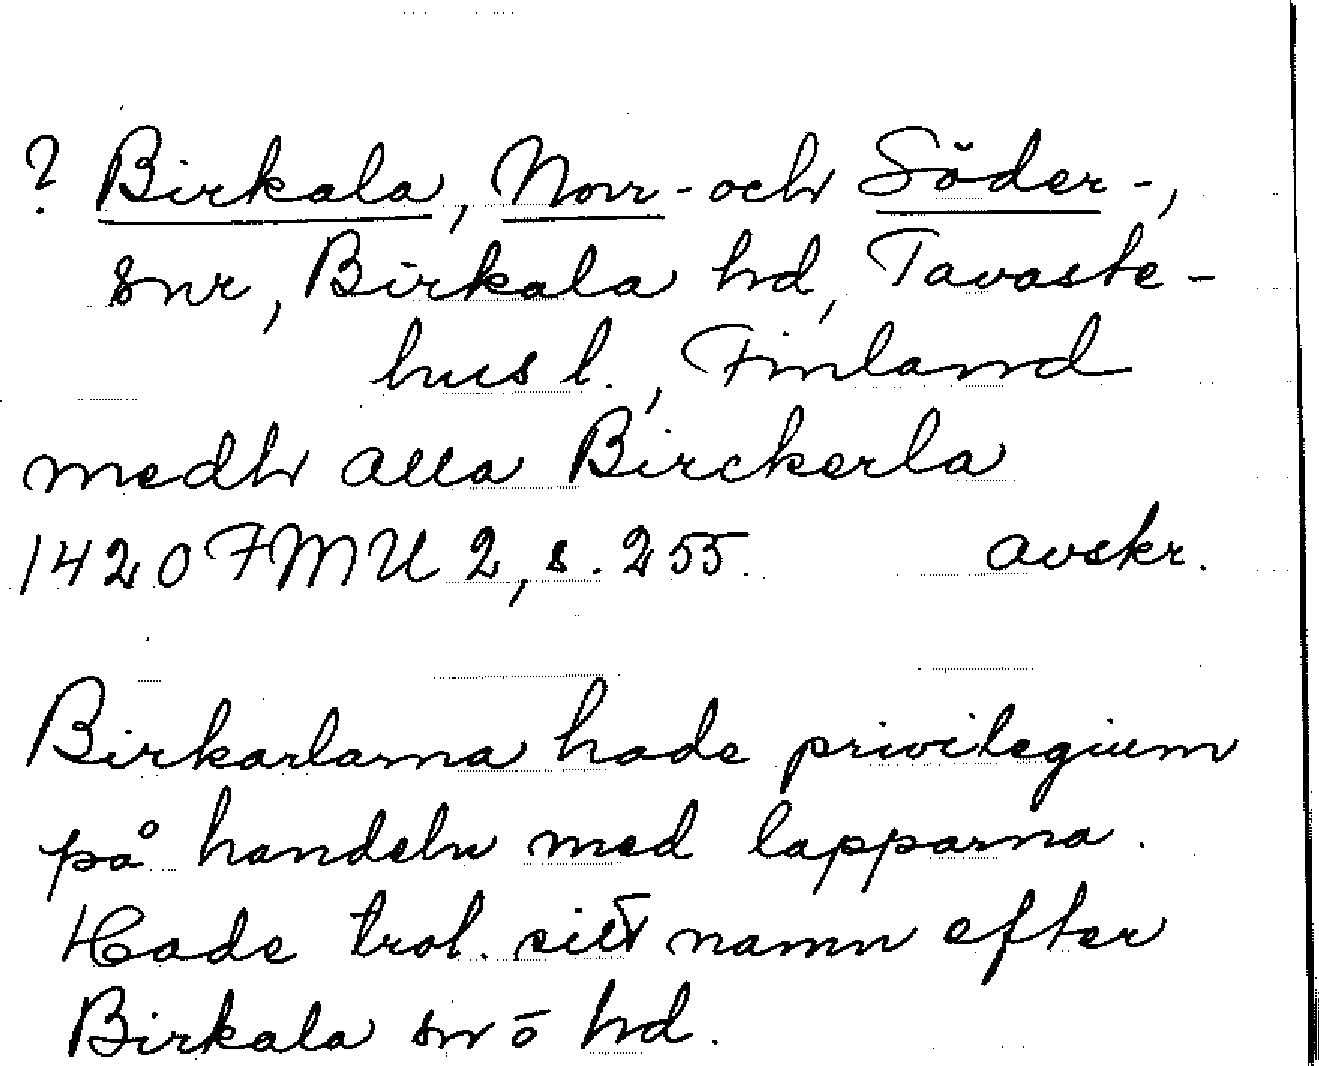 ? Birkala, Norr- och Söder-,
snr, Birkala hd, Tavaste-
hus l., Finland
medh alla Birckerla
1420 FMU 2, s. 255. avskr.
Birkarlarna hade privilegium
på handeln med lapparna.
Hade trol. sitt namn efter
Birkala sn o hd.